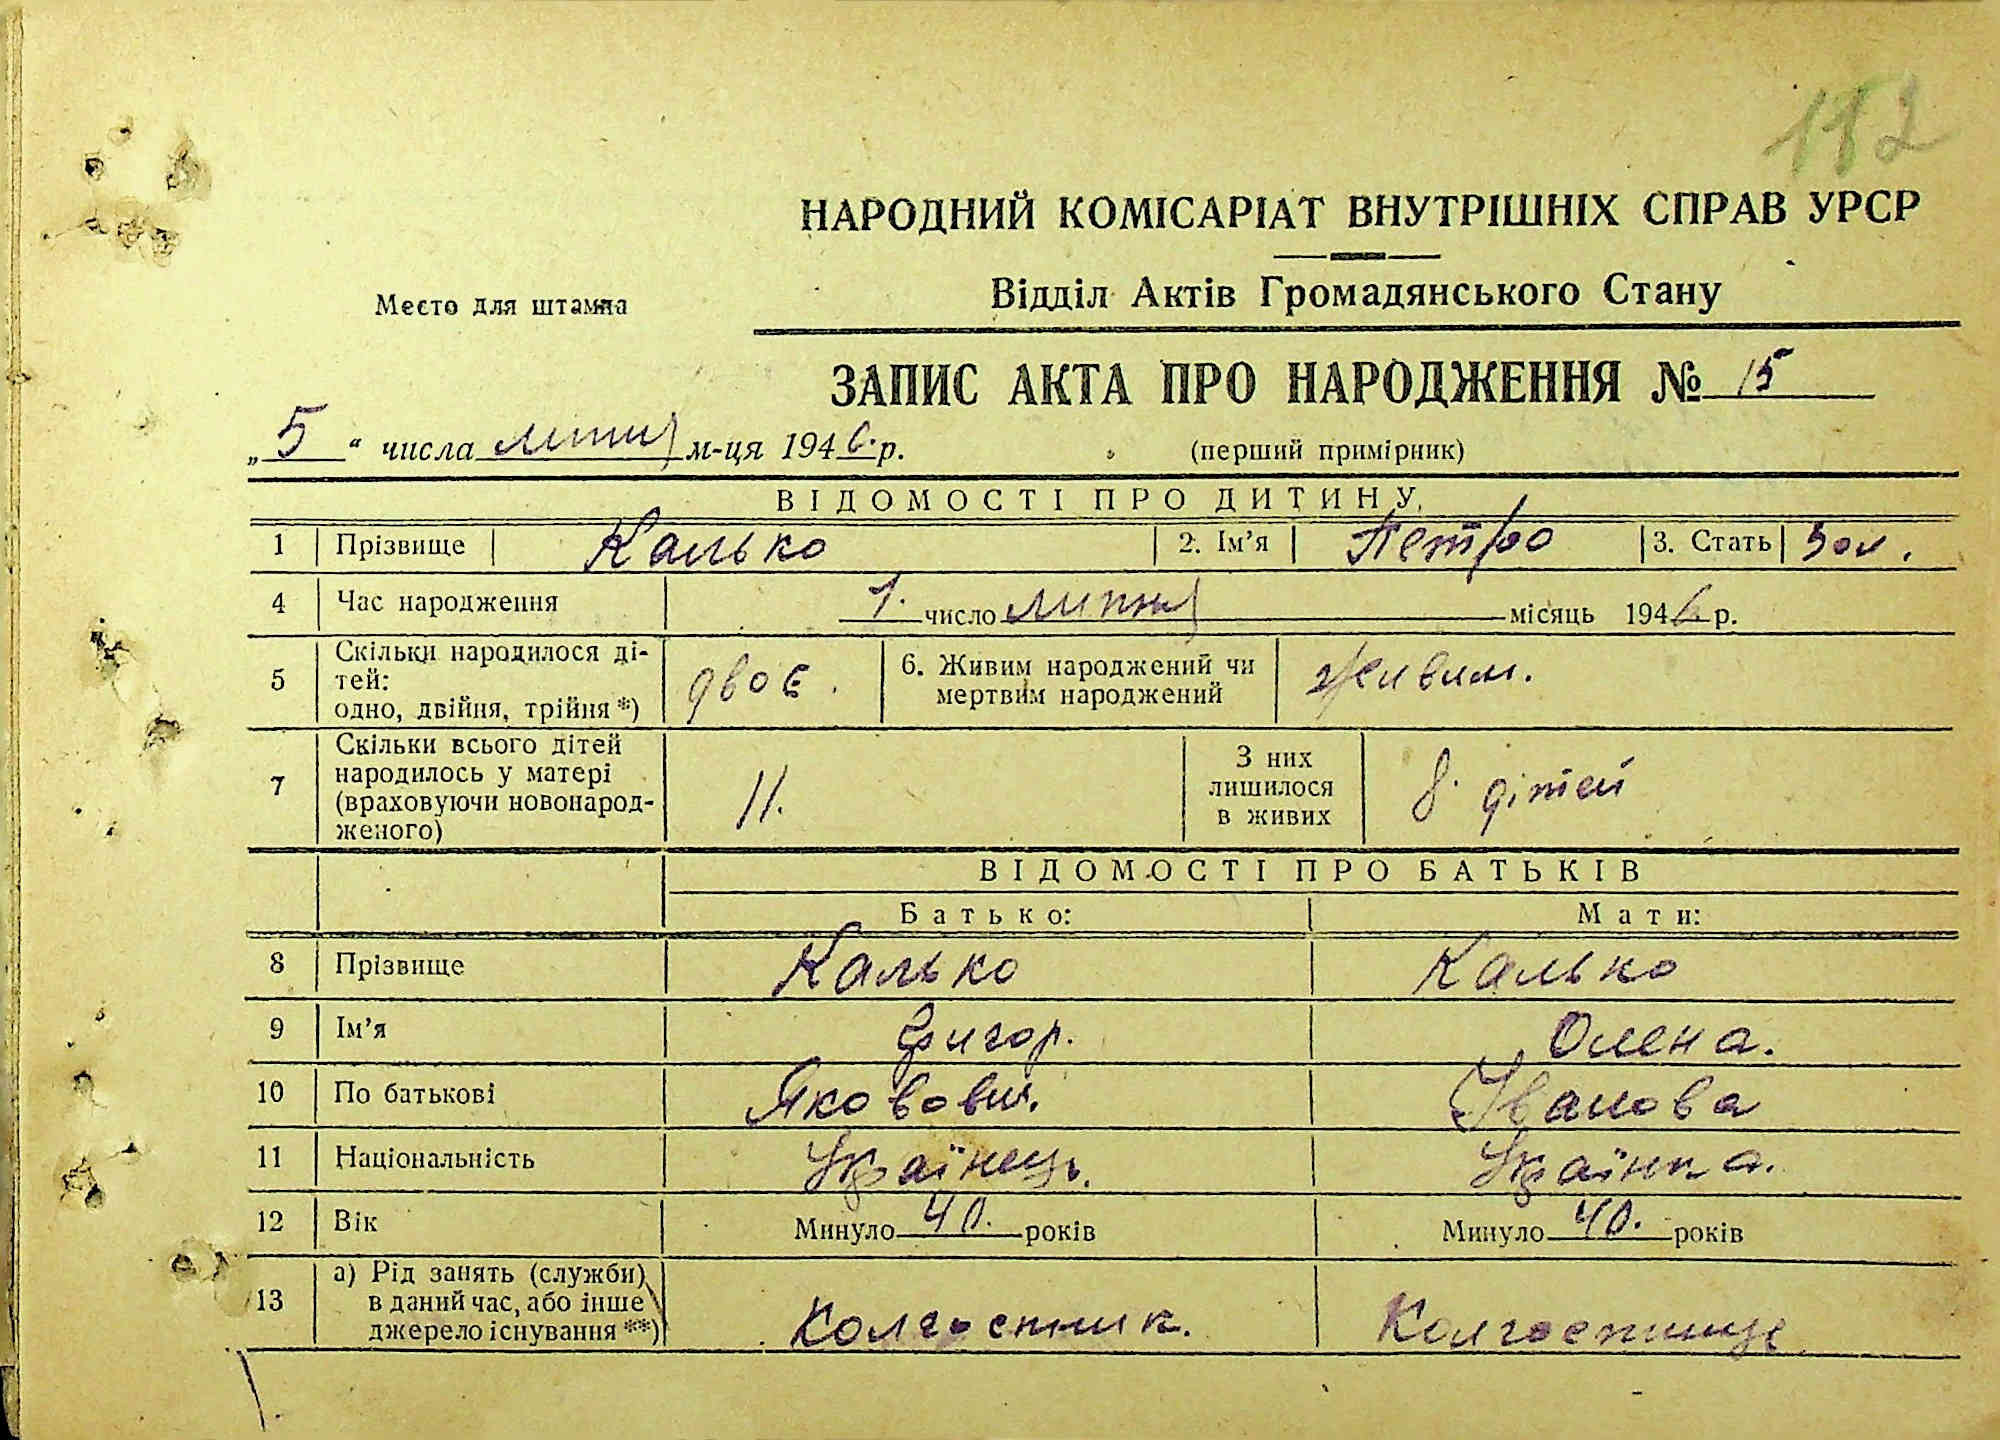 182
НАРОДНИЙ КОМІСАРІАТ ВНУТРІШНІХ СПРАВ УРСР
Место для штампа
Відділ Актів Громадянського Стану
ЗАПИС АКТА ПРО НАРОДЖЕННЯ № 15
„5“ числа липня м-ця 1946 р. (перший примірник)
ВІДОМОСТІ ПРО ДИТИНУ
1 Прізвище Калько 2. Ім’я Петро 3. Стать чол.
4 Час народження 1. число липня місяць 1946 р.
5 Скільки народилося ді-
тей:
одно, двійня, трійня *) двоє. 6. Живим народжений чи
мертвим народжений живим.
7 Скільки всього дітей
народилось у матері
(враховуючи новонарод-
женого) 11. З них
лишилося
в живих 8. дітей
ВІДОМОСТІ ПРО БАТЬКІВ
Батько: Мати:
8 Прізвище Калько Калько
9 Ім’я Григор. Олена.
10 По батькові Якович. Іванова
11 Національність Українець. Українка.
12 Вік Минуло 40. років Минуло 40. років
13 а) Рід занять (служби)
в даний час, або інше
джерело існування **) Колгоспник. Колгоспниця